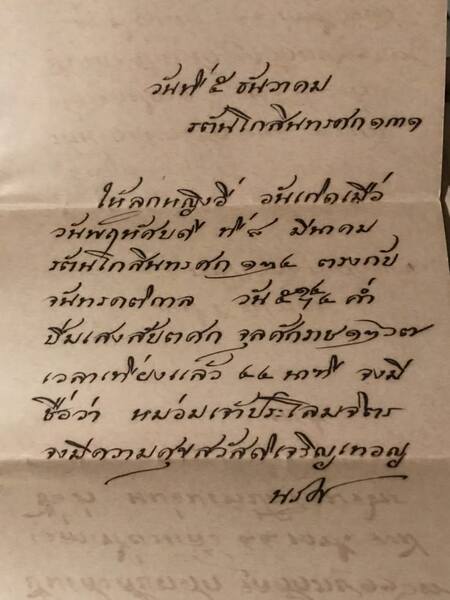 วันที่ ๕ ธันวาคม
รตนโกสินทรศก ๑๓๑
ให้ลูกหญิงอี่ วันเกิดเมื่อ
วันพฤหัศบดี ที่ ๘ มีนาคม
รตนโกสินทรศก ๑๒๔ ตรงกับ
จันทรคติกาล วัน ๕ ค่ำ
ปีมเสงสัปตศก จุลศักราช ๑๒๖๗
เวลาเที่ยงแล้ว ๔๔ นาที จงมี
ชื่อว่า หม่อมเจ้าประโลมจิตร
จงมีความศุขสวัสดิเจริญเทอญ
นริศ